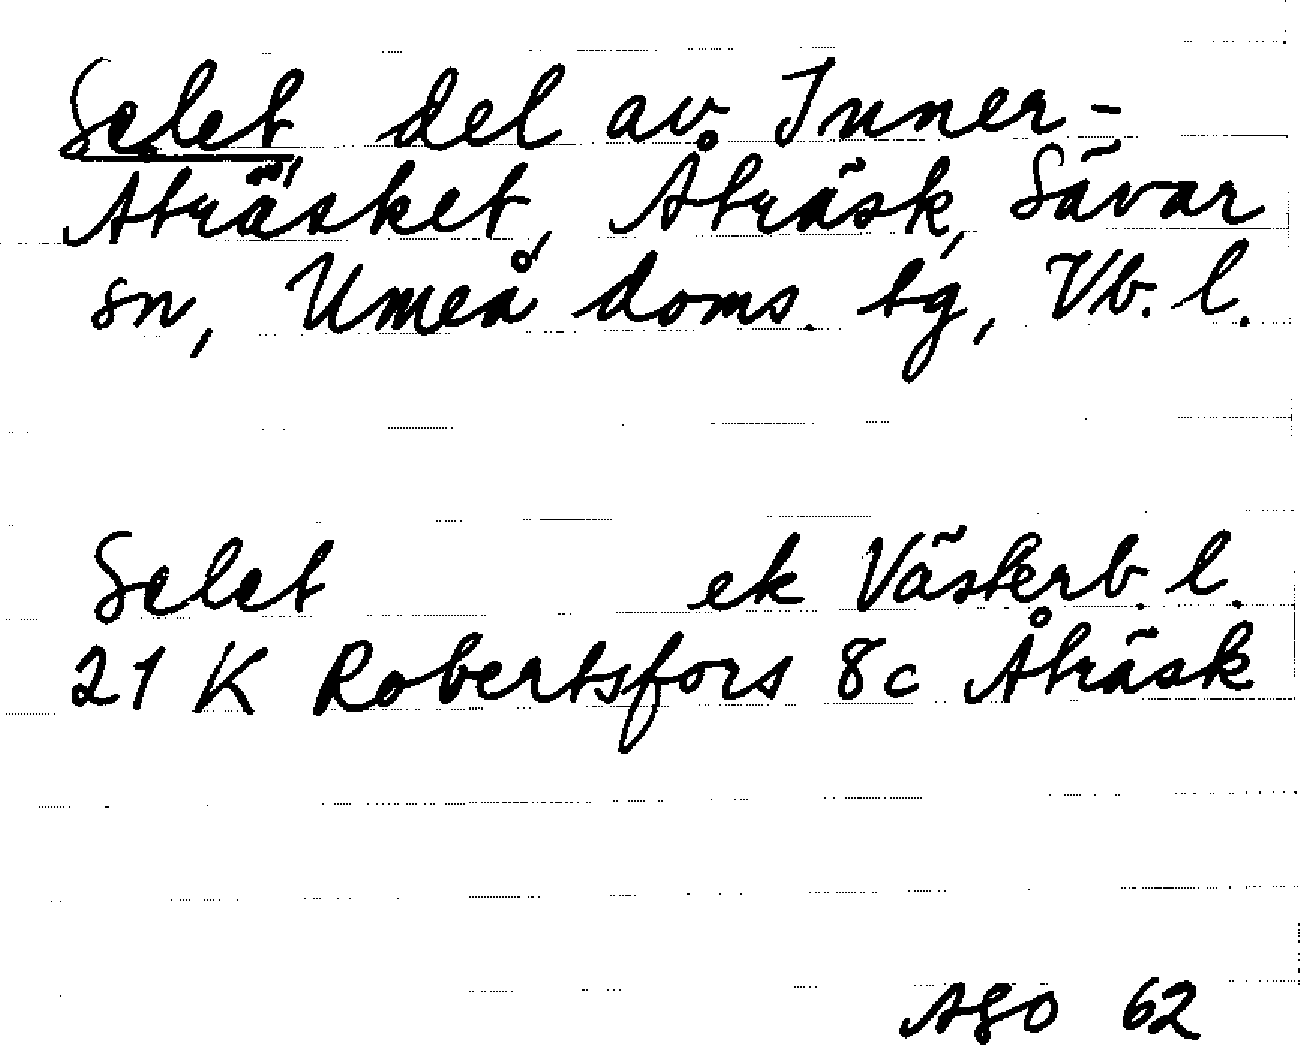 Selet, del av Inner-
Åträsket, Åträsk, Sävar
sn, Umeå doms. tg, Vb. l.
Selet ek Västerb. l.
21 K Robertsfors 8c Åträsk
ASO 62